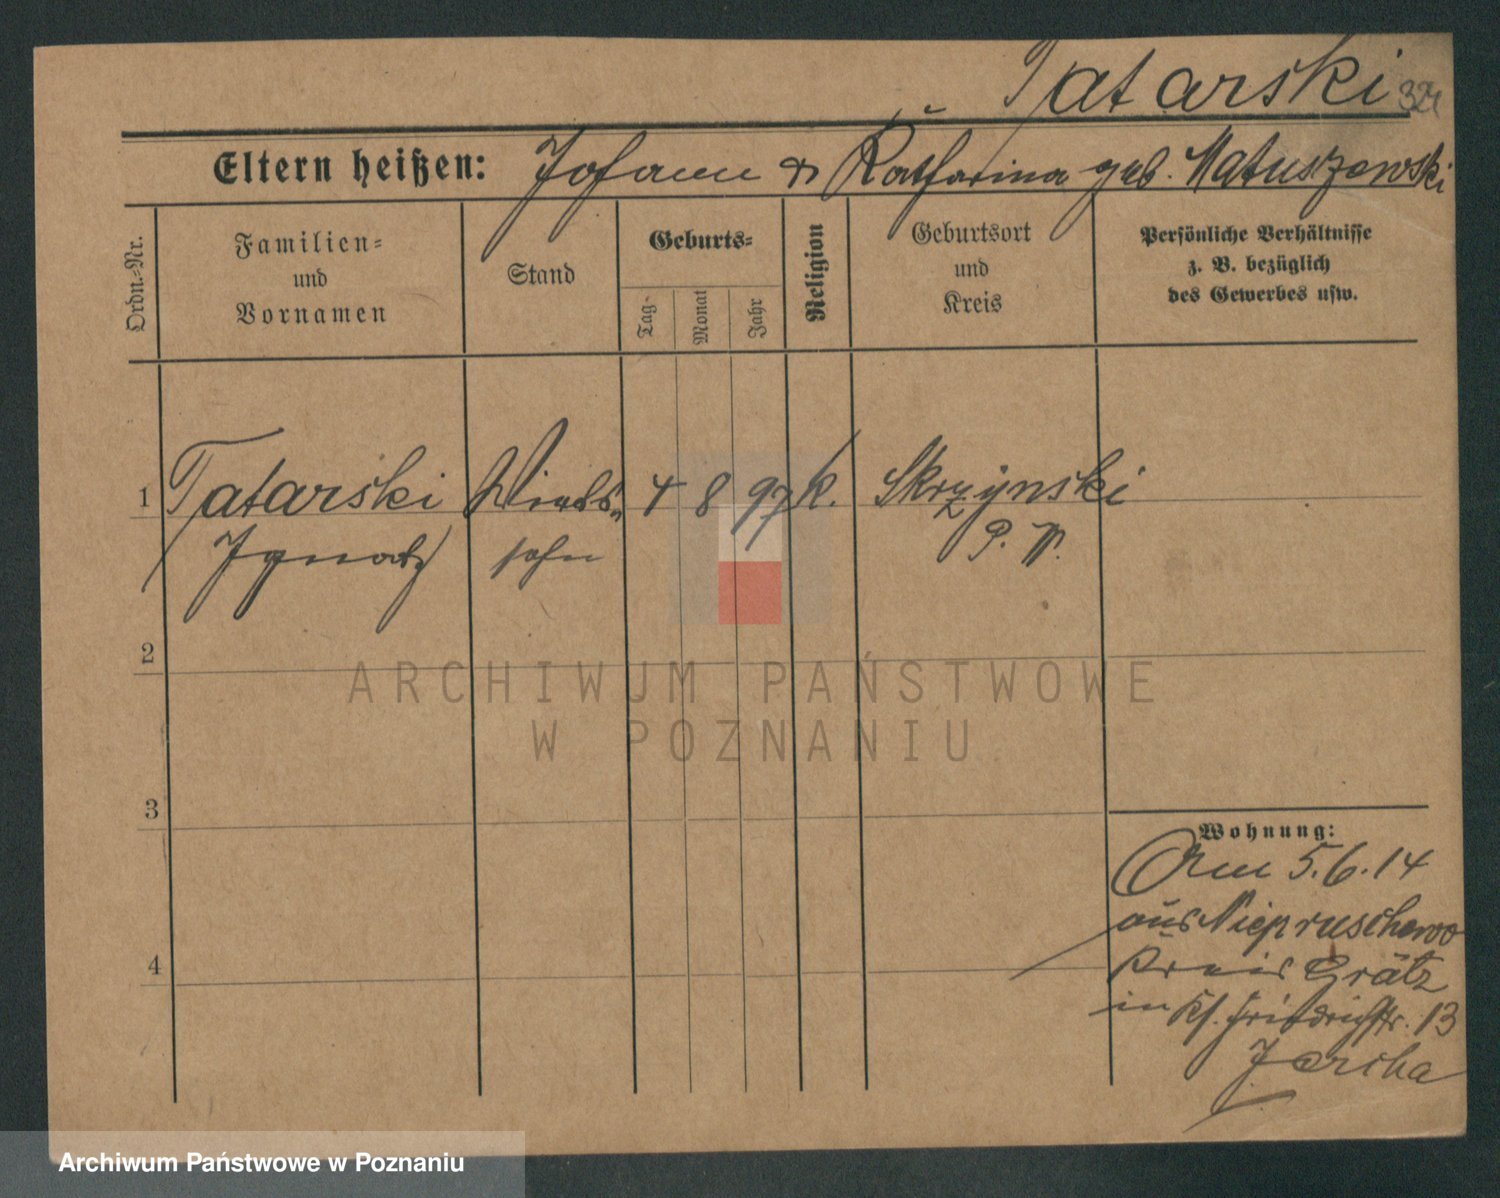 Tatarski 324
Eltern heißen: Johann & Katharina geb. Matuszewski
Ordn.-Nr.
Familien- und Vornamen
Stand
Geburts-
Tag- Monat Jahr
Religion
Geburtsort und Kreis
Persönliche Verhältnisse
z. B. bezüglich
des Gewerbes usw.
1 Tatarski Wirts- 4 8 97 k. Skrzynski
Ignatz sohn P. W.
2
3
4
Wohnung:
Am 5.6.14
aus Niepruschewo
Kreis Grätz
in Friedrichstr. 13
ARCHIWUM PAŃSTWOWE
W POZNANIU
Archiwum Państwowe w Poznaniu